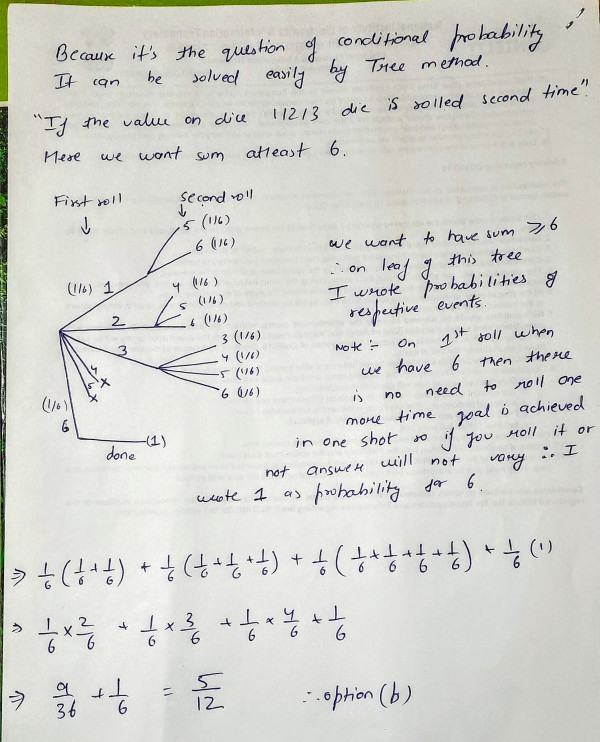 Because it's the question of conditional probability
It can be solved easily by Tree method.
"If the value on dice 1/2/3 die is rolled second time".
Here we want sum atleast 6.
First roll
second roll
5 (1/6)
6 (1/6)
(1/6) 1
4 (1/6)
5 (1/6)
6 (1/6)
2
3
3 (1/6)
4 (1/6)
5 (1/6)
6 (1/6)
4 x
5 x
(1/6)
6
(1)
done
we want to have sum ≥ 6
∴ on leaf of this tree
I wrote probabilities of
respective events.
Note :- on 1st roll when
we have 6 then there
is no need to roll one
more time goal is achieved
in one shot so if you roll it or
not answer will not vary ∴ I
wrote 1 as probability for 6.
⇒ 1/6 (1/6 + 1/6) + 1/6 (1/6 + 1/6 + 1/6) + 1/6 (1/6 + 1/6 + 1/6 + 1/6) + 1/6 (1)
⇒ 1/6 × 2/6 + 1/6 × 3/6 + 1/6 × 4/6 + 1/6
⇒ 9/36 + 1/6 = 5/12 ∴ option (b)